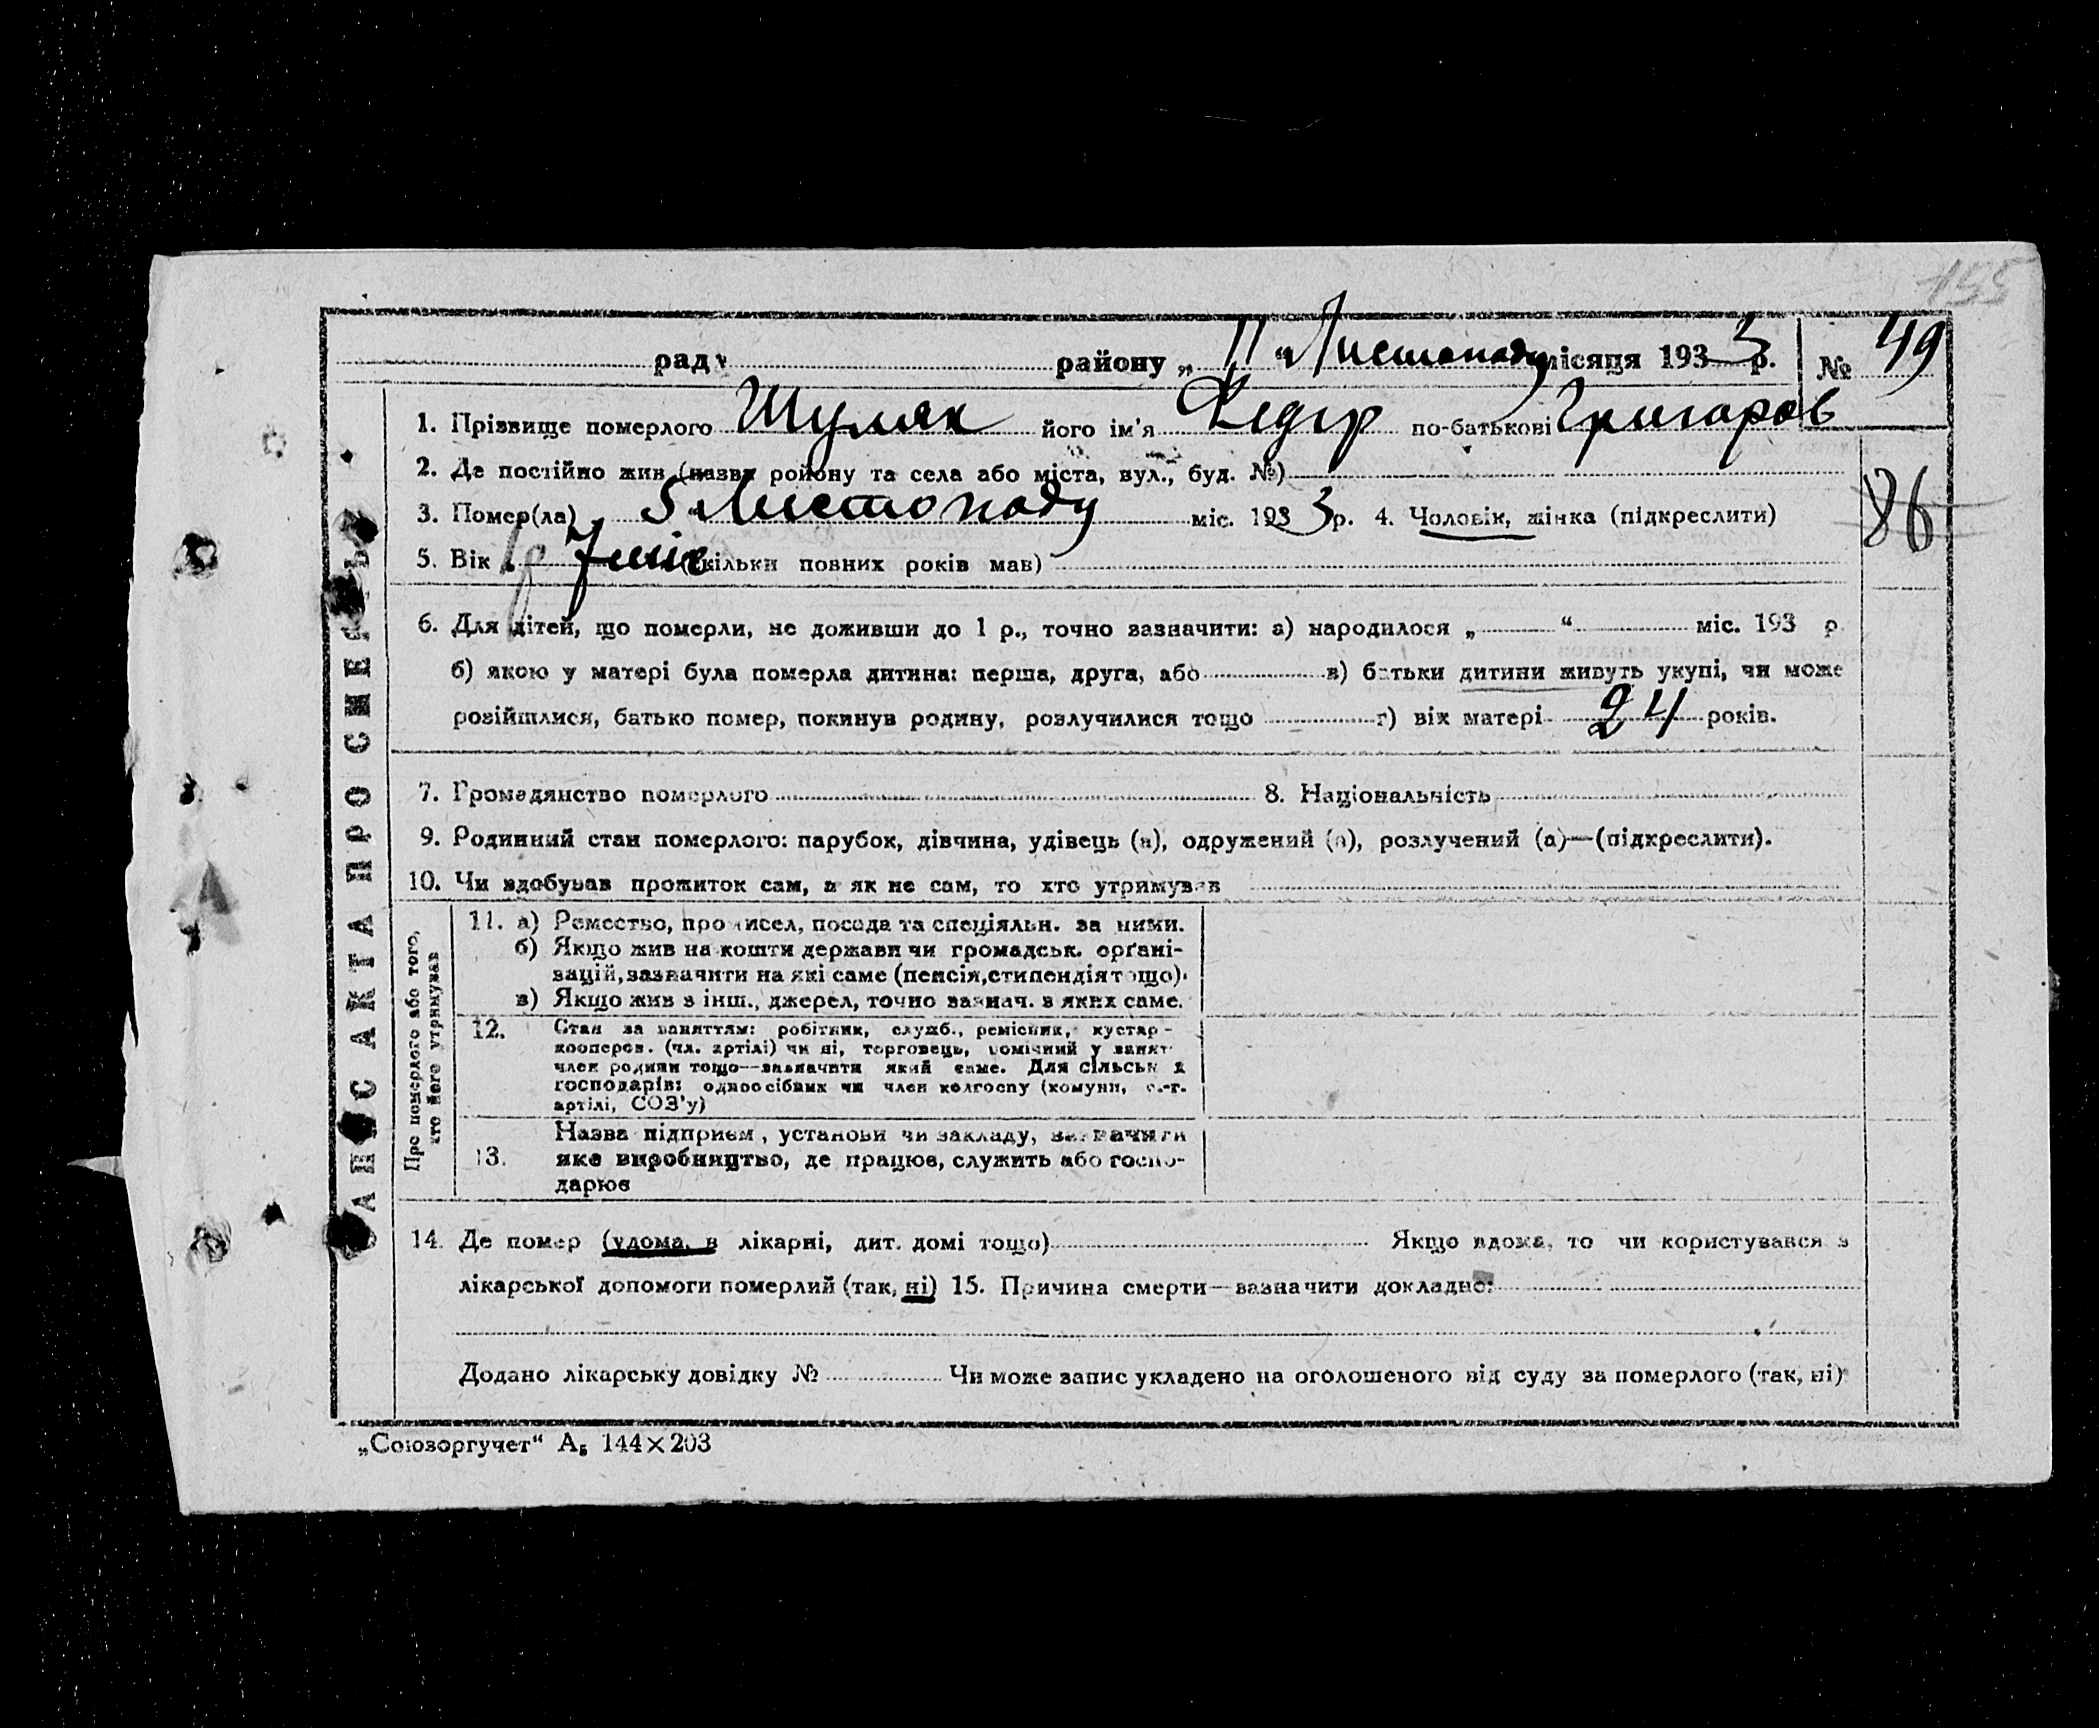 155
раду району „ 11 “ Листопаду місяця 1933 р. № 49
1. Прізвище померлого Шуляк його ім'я Федір по-батькові Григоров
2. Де постійно жив (назва району та села або міста, вул., буд. №)
3. Помер(ла) 5 “ Листопаду міс. 1933 р. 4. Чоловік, жінка (підкреслити)
86
5. Вік 7 (скільки повних років мав)
6. Для дітей, що померли, не доживши до 1 р., точно зазначити: а) народилося „ “ міс. 193 р.
б) якою у матері була померла дитина: перша, друга, або в) батьки дитини живуть укупі, чи може
розійшлися, батько помер, покинув родину, розлучилися тощо г) вік матері 24 років.
7. Громадянство померлого 8. Національність
9. Родинний стан померлого: парубок, дівчина, удівець (а), одружений (а), розлучений (а)—(підкреслити).
10. Чи здобував прожиток сам, а як не сам, то хто утримував
Про померлого або того, хто його утримував
11. а) Ремество, промисел, посада та спеціяльн. за ними.
б) Якщо жив на кошти держави чи громадськ. орґані-
зацій, зазначити на які саме (пенсія, стипендія тощо).
в) Якщо жив з інш., джерел, точно зазнач. з яких саме.
12. Стан за заняттям: робітник, служб., ремісник, кустар-
кооперов. (чл. артілі) чи ні, торговець, помічний у занят.
член родини тощо—зазначити який саме. Для сільськ х
господарів: одноосібник чи член колгоспу (комуни, с.-г.
артілі, СОЗ'у)
13. Назва підприєм, установи чи закладу, зазначити
яке виробництво, де працює, служить або госпо-
дарює
14. Де помер (удома, в лікарні, дит. домі тощо) Якщо вдома, то чи користувався з
лікарської допомоги померлий (так, ні) 15. Причина смерти—зазначити докладно:
Додано лікарську довідку № Чи може запис укладено на оголошеного від суду за померлого (так, ні)
АПИС АКТА ПРО СМЕРТЬ
„Союзоргучет“ А5 144×203